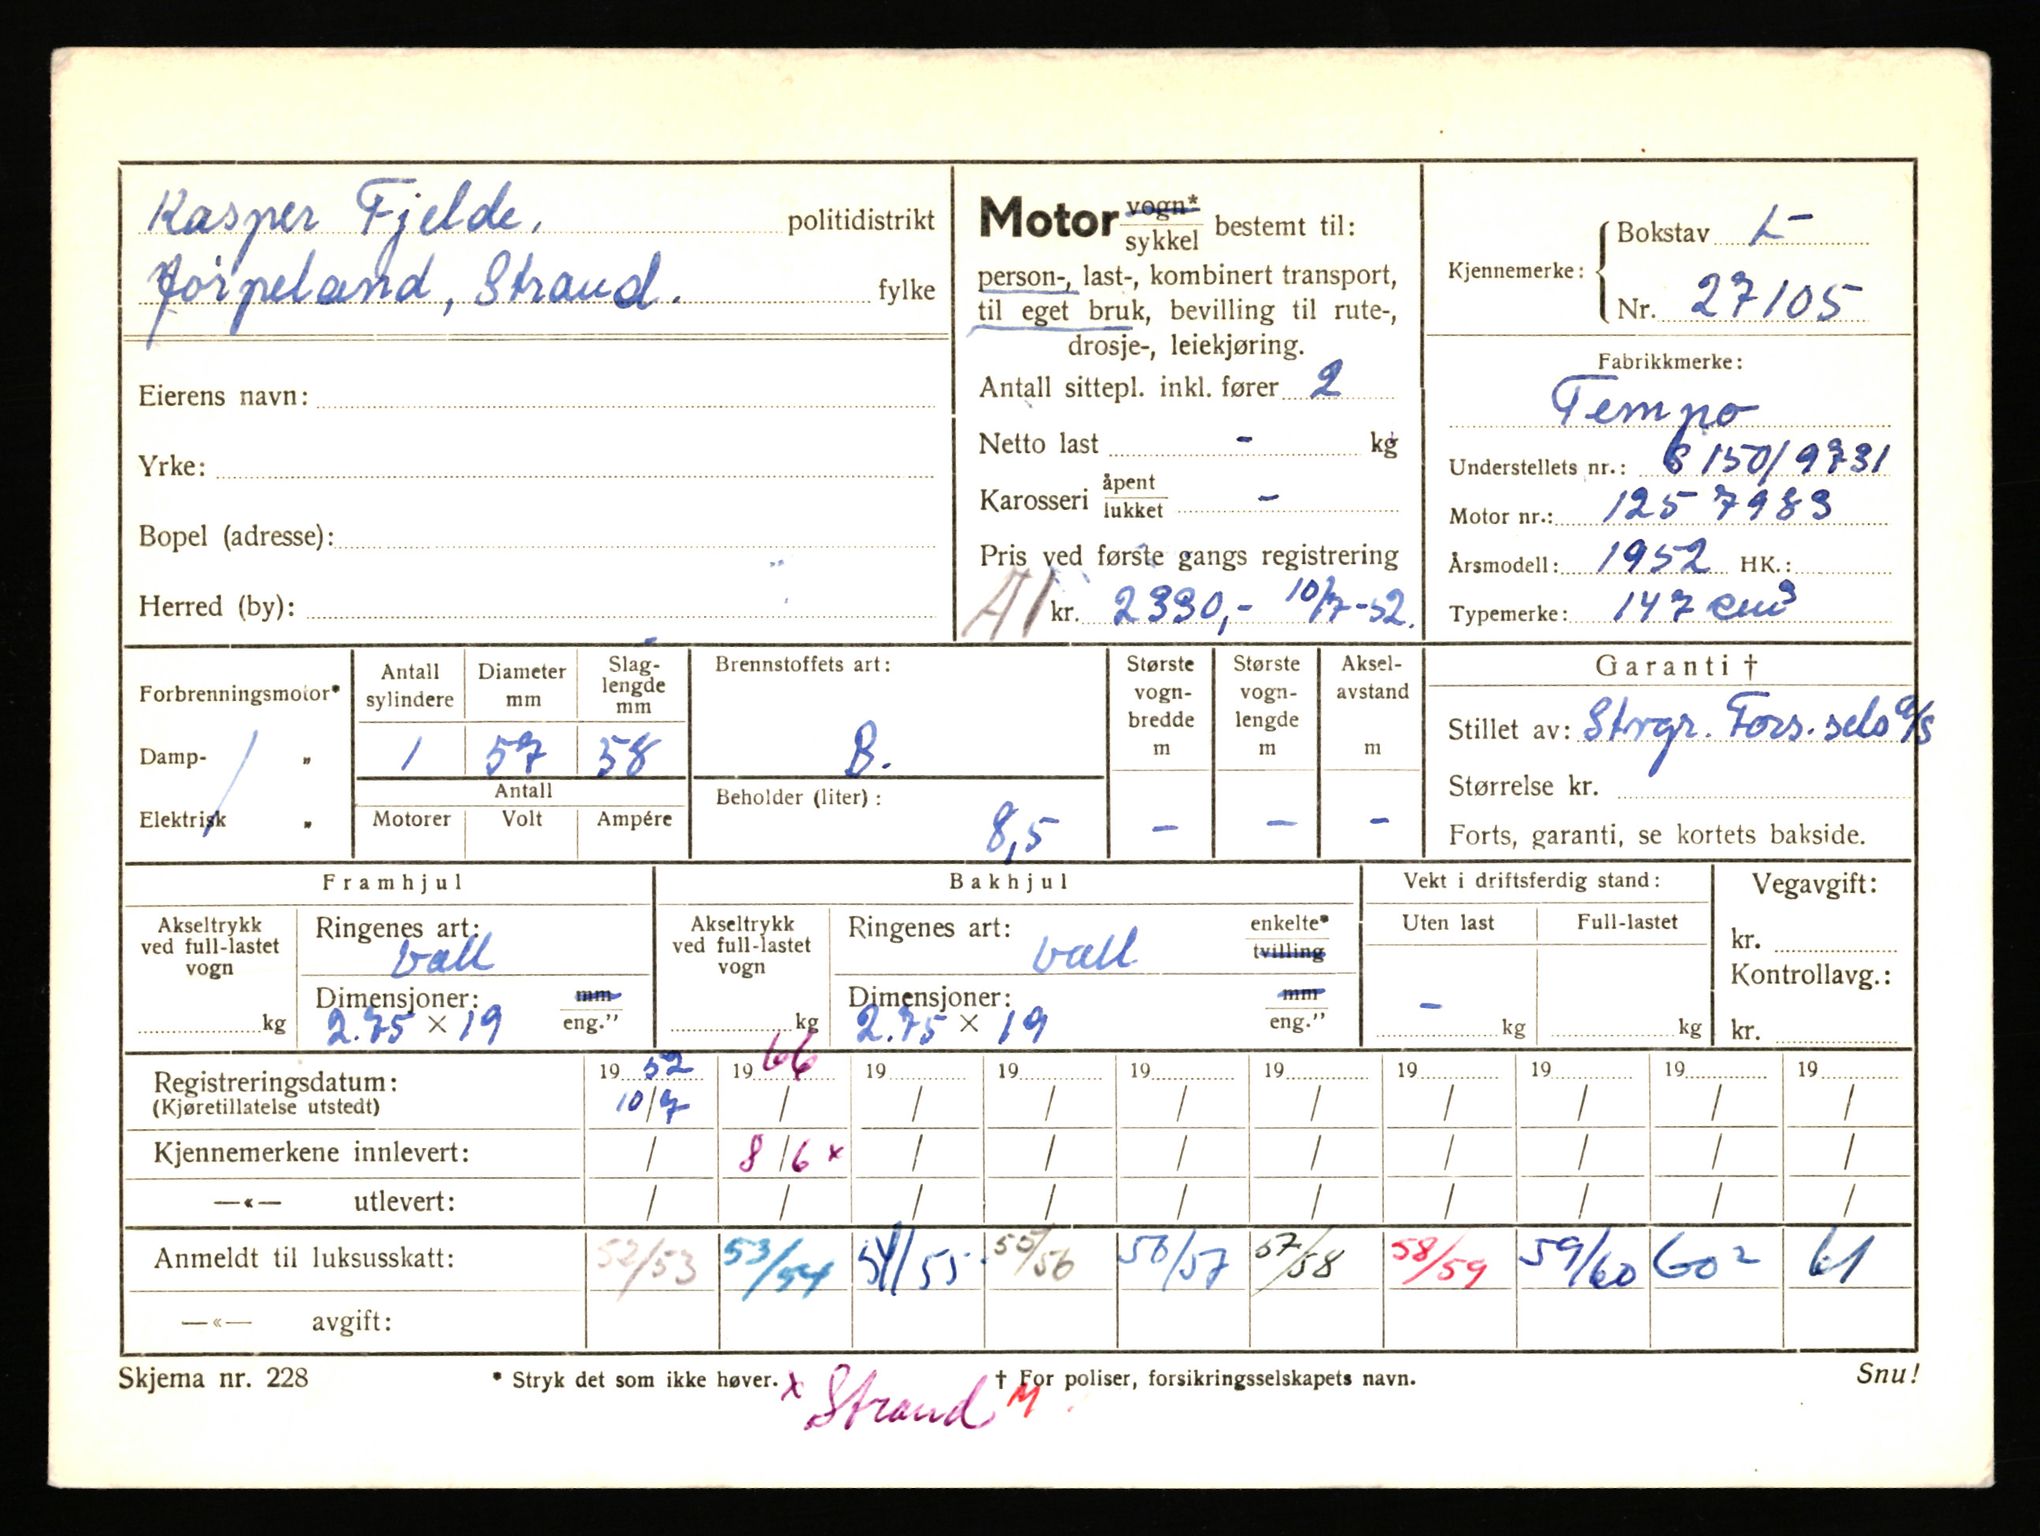 Kasper Fjelde. politidistrikt
Jørpeland, Strand. fylke
Eierens navn:
Yrke:
Bopel (adresse):
Herred (by):
Motor vogn* sykkel bestemt til:
person-, last-, kombinert transport,
til eget bruk, bevilling til rute-,
drosje-, leiekjøring.
Antall sittepl. inkl. fører 2
Netto last - kg
Karosseri åpent lukket -
Pris ved første gangs registrering
A1 kr. 2330,- 10/7-52.
Kjennemerke: Bokstav L
Nr. 27105
Fabrikkmerke:
Tempo
Understellets nr.: S 150/9731
Motor nr.: 1257983
Årsmodell: 1952 HK.:
Typemerke: 147 cm3
Forbrenningsmotor*
Damp- "
Elektrisk "
Antall sylindere Diameter mm Slag-lengde mm
1 57 58
Antall
Motorer Volt Ampére
Brennstoffets art:
B.
Beholder (liter):
8,5
Største vogn-bredde m Største vogn-lengde m Aksel-avstand m
- - -
Garanti †
Stillet av: Strgr. Fors.sels a/s
Størrelse kr.
Forts, garanti, se kortets bakside.
Framhjul
Akseltrykk ved full-lastet vogn
kg
Ringenes art:
ball
Dimensjoner: mm eng."
2.75 × 19
Bakhjul
Akseltrykk ved full-lastet vogn
kg
Ringenes art: enkelte* tvilling
ball
Dimensjoner: mm eng."
2.75 × 19
Vekt i driftsferdig stand:
Uten last Full-lastet
- kg kg
Vegavgift:
kr.
Kontrollavg.:
kr.
Registreringsdatum: 19 52 19 66 19 19 19 19 19 19 19 19
(Kjøretillatelse utstedt) 10/7 / / / / / / / / /
Kjennemerkene innlevert: / 8/6 x / / / / / / / /
—«— utlevert: / / / / / / / / / /
Anmeldt til luksusskatt: 52/53 53/54 54/55 55/56 56/57 57/58 58/59 59/60 60² 61
—«— avgift:
Skjema nr. 228 * Stryk det som ikke høver. † For poliser, forsikringsselskapets navn. Snu!
x Strand M